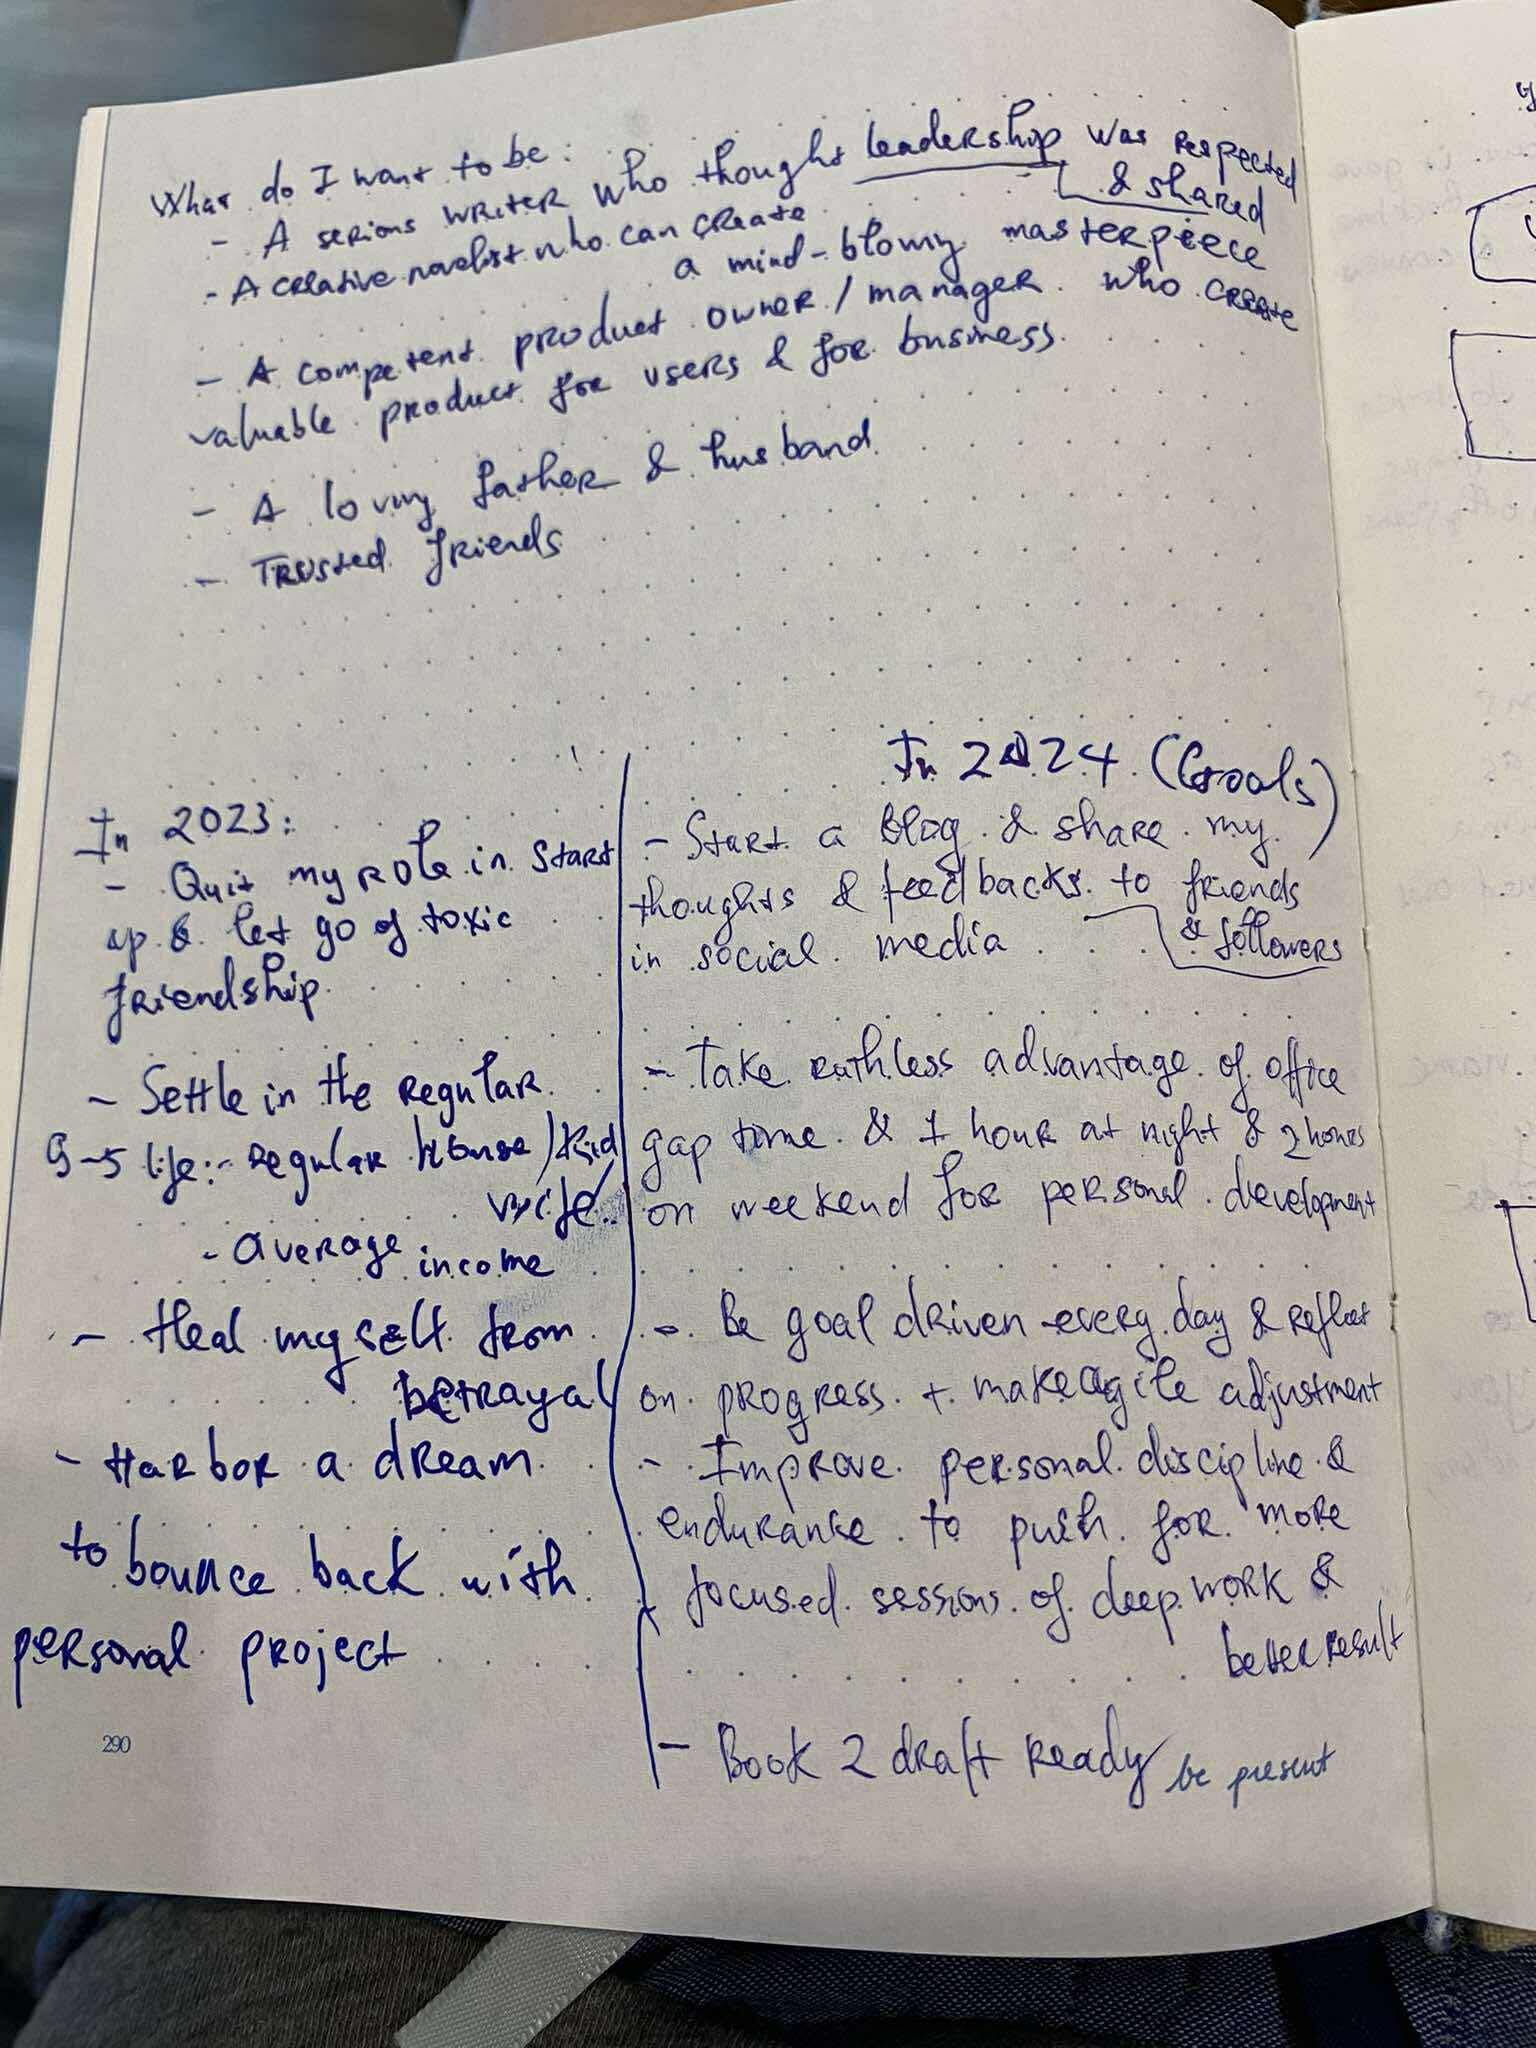 What do I want to be:
- A serious writer who thought leadership was respected
& shared
- A creative novelist who can create
a mind-blowing masterpiece
- A competent product owner / manager who create
valuable product for users & for business
- A loving father & husband
- Trusted friends
In 2023:
- Quit my role in start
up & let go of toxic
friendship
- Settle in the regular
9-5 life: regular house / kid
wife
- average income
- Heal myself from
betrayal
- Harbor a dream
to bounce back with
personal project
290
In 2024 (Goals)
- Start a blog & share my
thoughts & feedbacks to friends
& followers
in social media
- Take ruthless advantage of office
gap time & 1 hour at night & 2 hours
on weekend for personal development
- Be goal driven every day & reflect
on progress + make agile adjustment
- Improve personal discipline &
endurance to push for more
focused sessions of deep work &
better result
- Book 2 draft ready be present